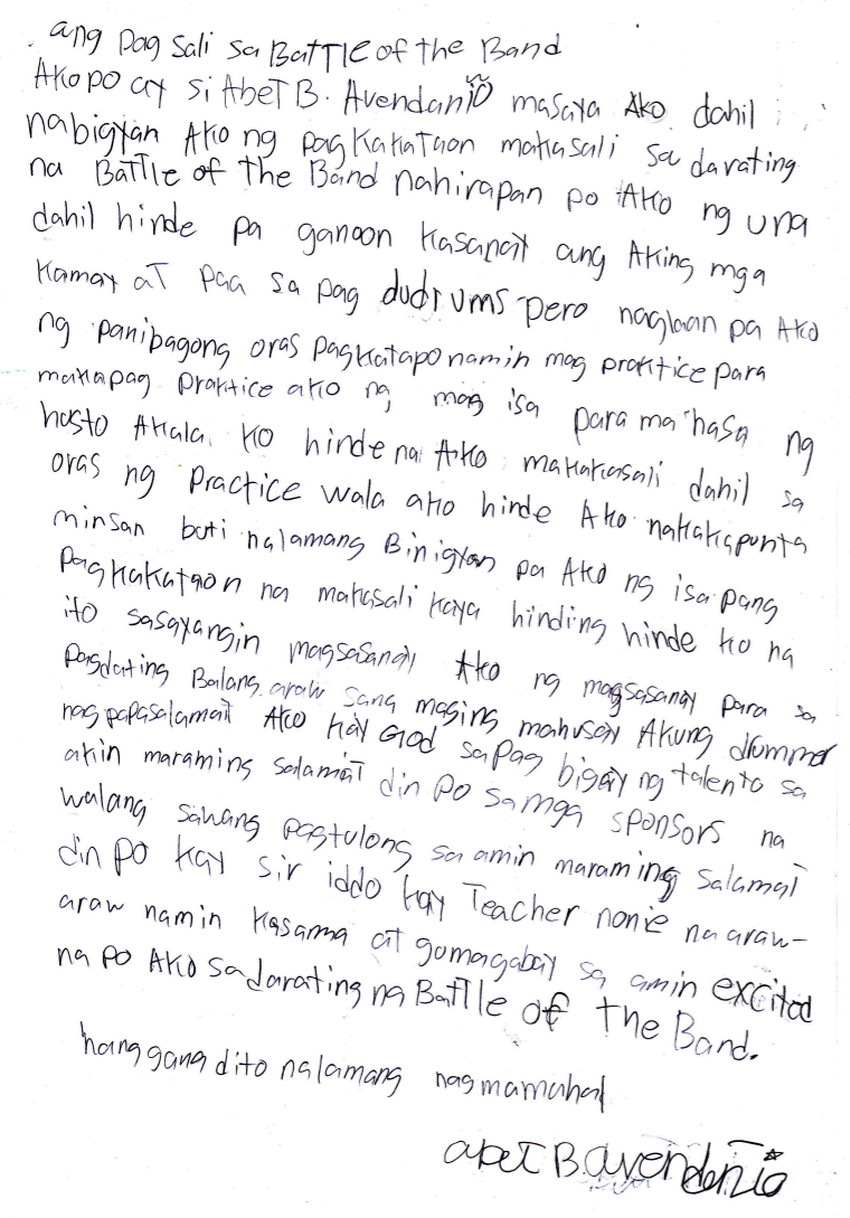 ang pag sali sa BaTTLE of the Band
Ako po ay si Abet B. Avendanio masaya Ako dahil
nabigyan Ako ng pagkakaTaon makasali sa darating
na BaTTle of the Band nahirapan po Ako ng una
dahil hinde pa ganoon kasanay ang Aking mga
kamay aT paa sa pag dudrums pero naglaan pa Ako
ng panibagong oras pagkatapo namin mag praktice para
makapag praktice ako ng mag isa para ma hasa ng
husto Akala ko hinde na Ako makakasali dahil sa
oras ng practice wala ako hinde Ako nakakapunta
minsan buti nalamang Binigyan pa Ako ng isa pang
pagkakataon na makasali kaya hinding hinde ko na
ito sasayangin magsasanay Ako ng magsasanay para sa
pagdating Balang araw sana maging mahusay Akung drummer
nag papasalamat Ako kay God sapag bigay ng talento sa
akin maraming salamat din po sa mga sponsors na
walang sawang pagtulong sa amin maraming salamat
din po kay sir iddo kay Teacher nonie na araw-
araw namin kasama at gumagabay sa amin excited
na po Ako sa darating na BaTTle of the Band.
hang gang dito nalamang nagmamahal
abet B. avendenio